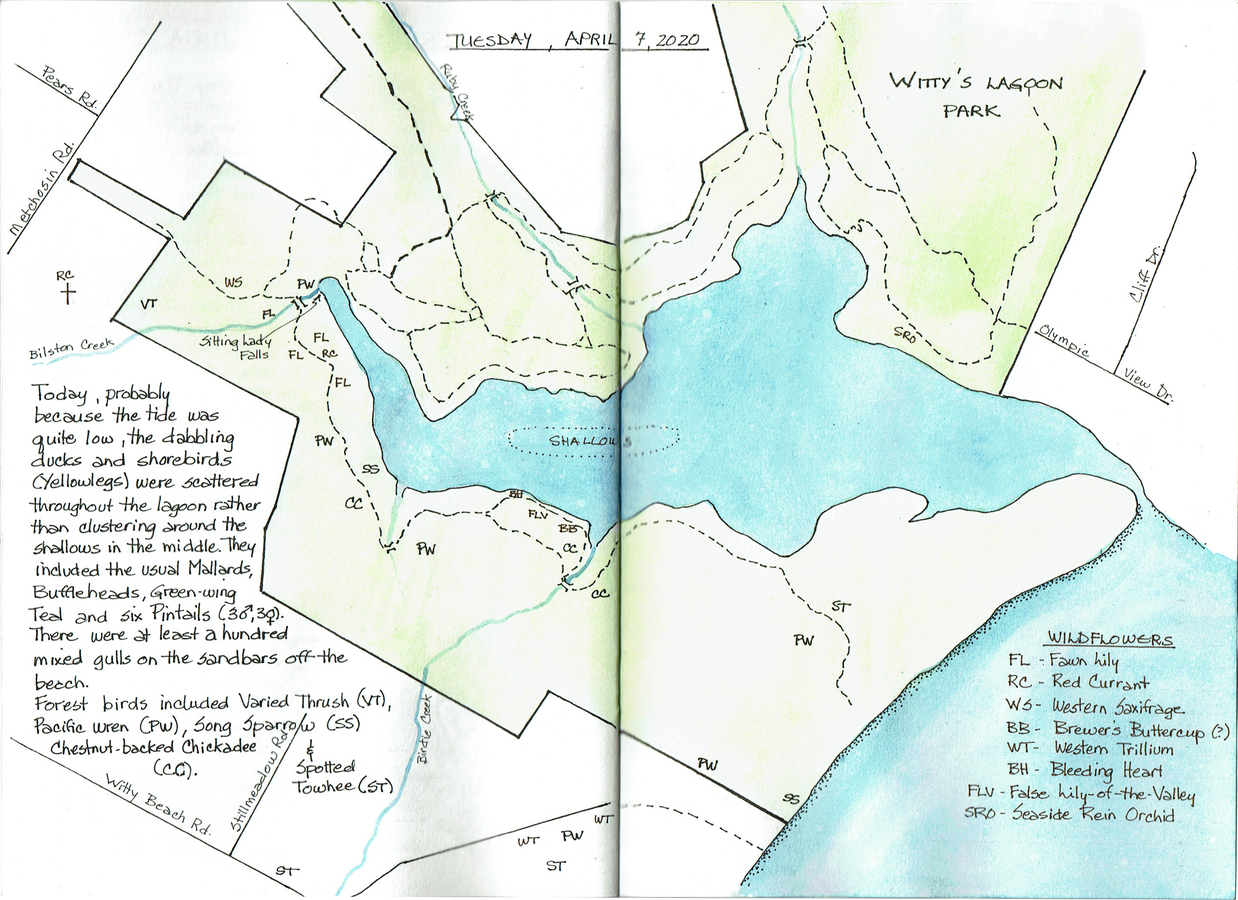 TUESDAY, APRIL 7, 2020
WITTY'S LAGOON
PARK
Pears Rd.
Metchosin Rd.
Ruby Creek
RC
VT
WS
PW
FL
Bilston Creek
Sitting Lady
Falls
FL
FL
RC
FL
PW
SS
CC
PW
BH
FLV
BB
CC
CC
SHALLOWS
SRO
Cliff Dr.
Olympic
View Dr.
ST
PW
Today, probably
because the tide was
quite low, the dabbling
ducks and shorebirds
(Yellowlegs) were scattered
throughout the lagoon rather
than clustering around the
shallows in the middle. They
included the usual Mallards,
Buffleheads, Green-wing
Teal and six Pintails (3♂,3♀).
There were at least a hundred
mixed gulls on the sandbars off the
beach.
Forest birds included Varied Thrush (VT),
Pacific wren (PW), Song Sparrow (SS)
Chestnut-backed Chickadee
(CC).
&
Spotted
Towhee (ST)
Birdie Creek
Witty Beach Rd.
Stillmeadow Rd.
ST
WT
PW
WT
ST
PW
SS
WILDFLOWERS
FL - Fawn Lily
RC - Red Currant
WS - Western Saxifrage
BB - Brewer's Buttercup (?)
WT - Western Trillium
BH - Bleeding Heart
FLV - False Lily-of-the-Valley
SRO - Seaside Rein Orchid